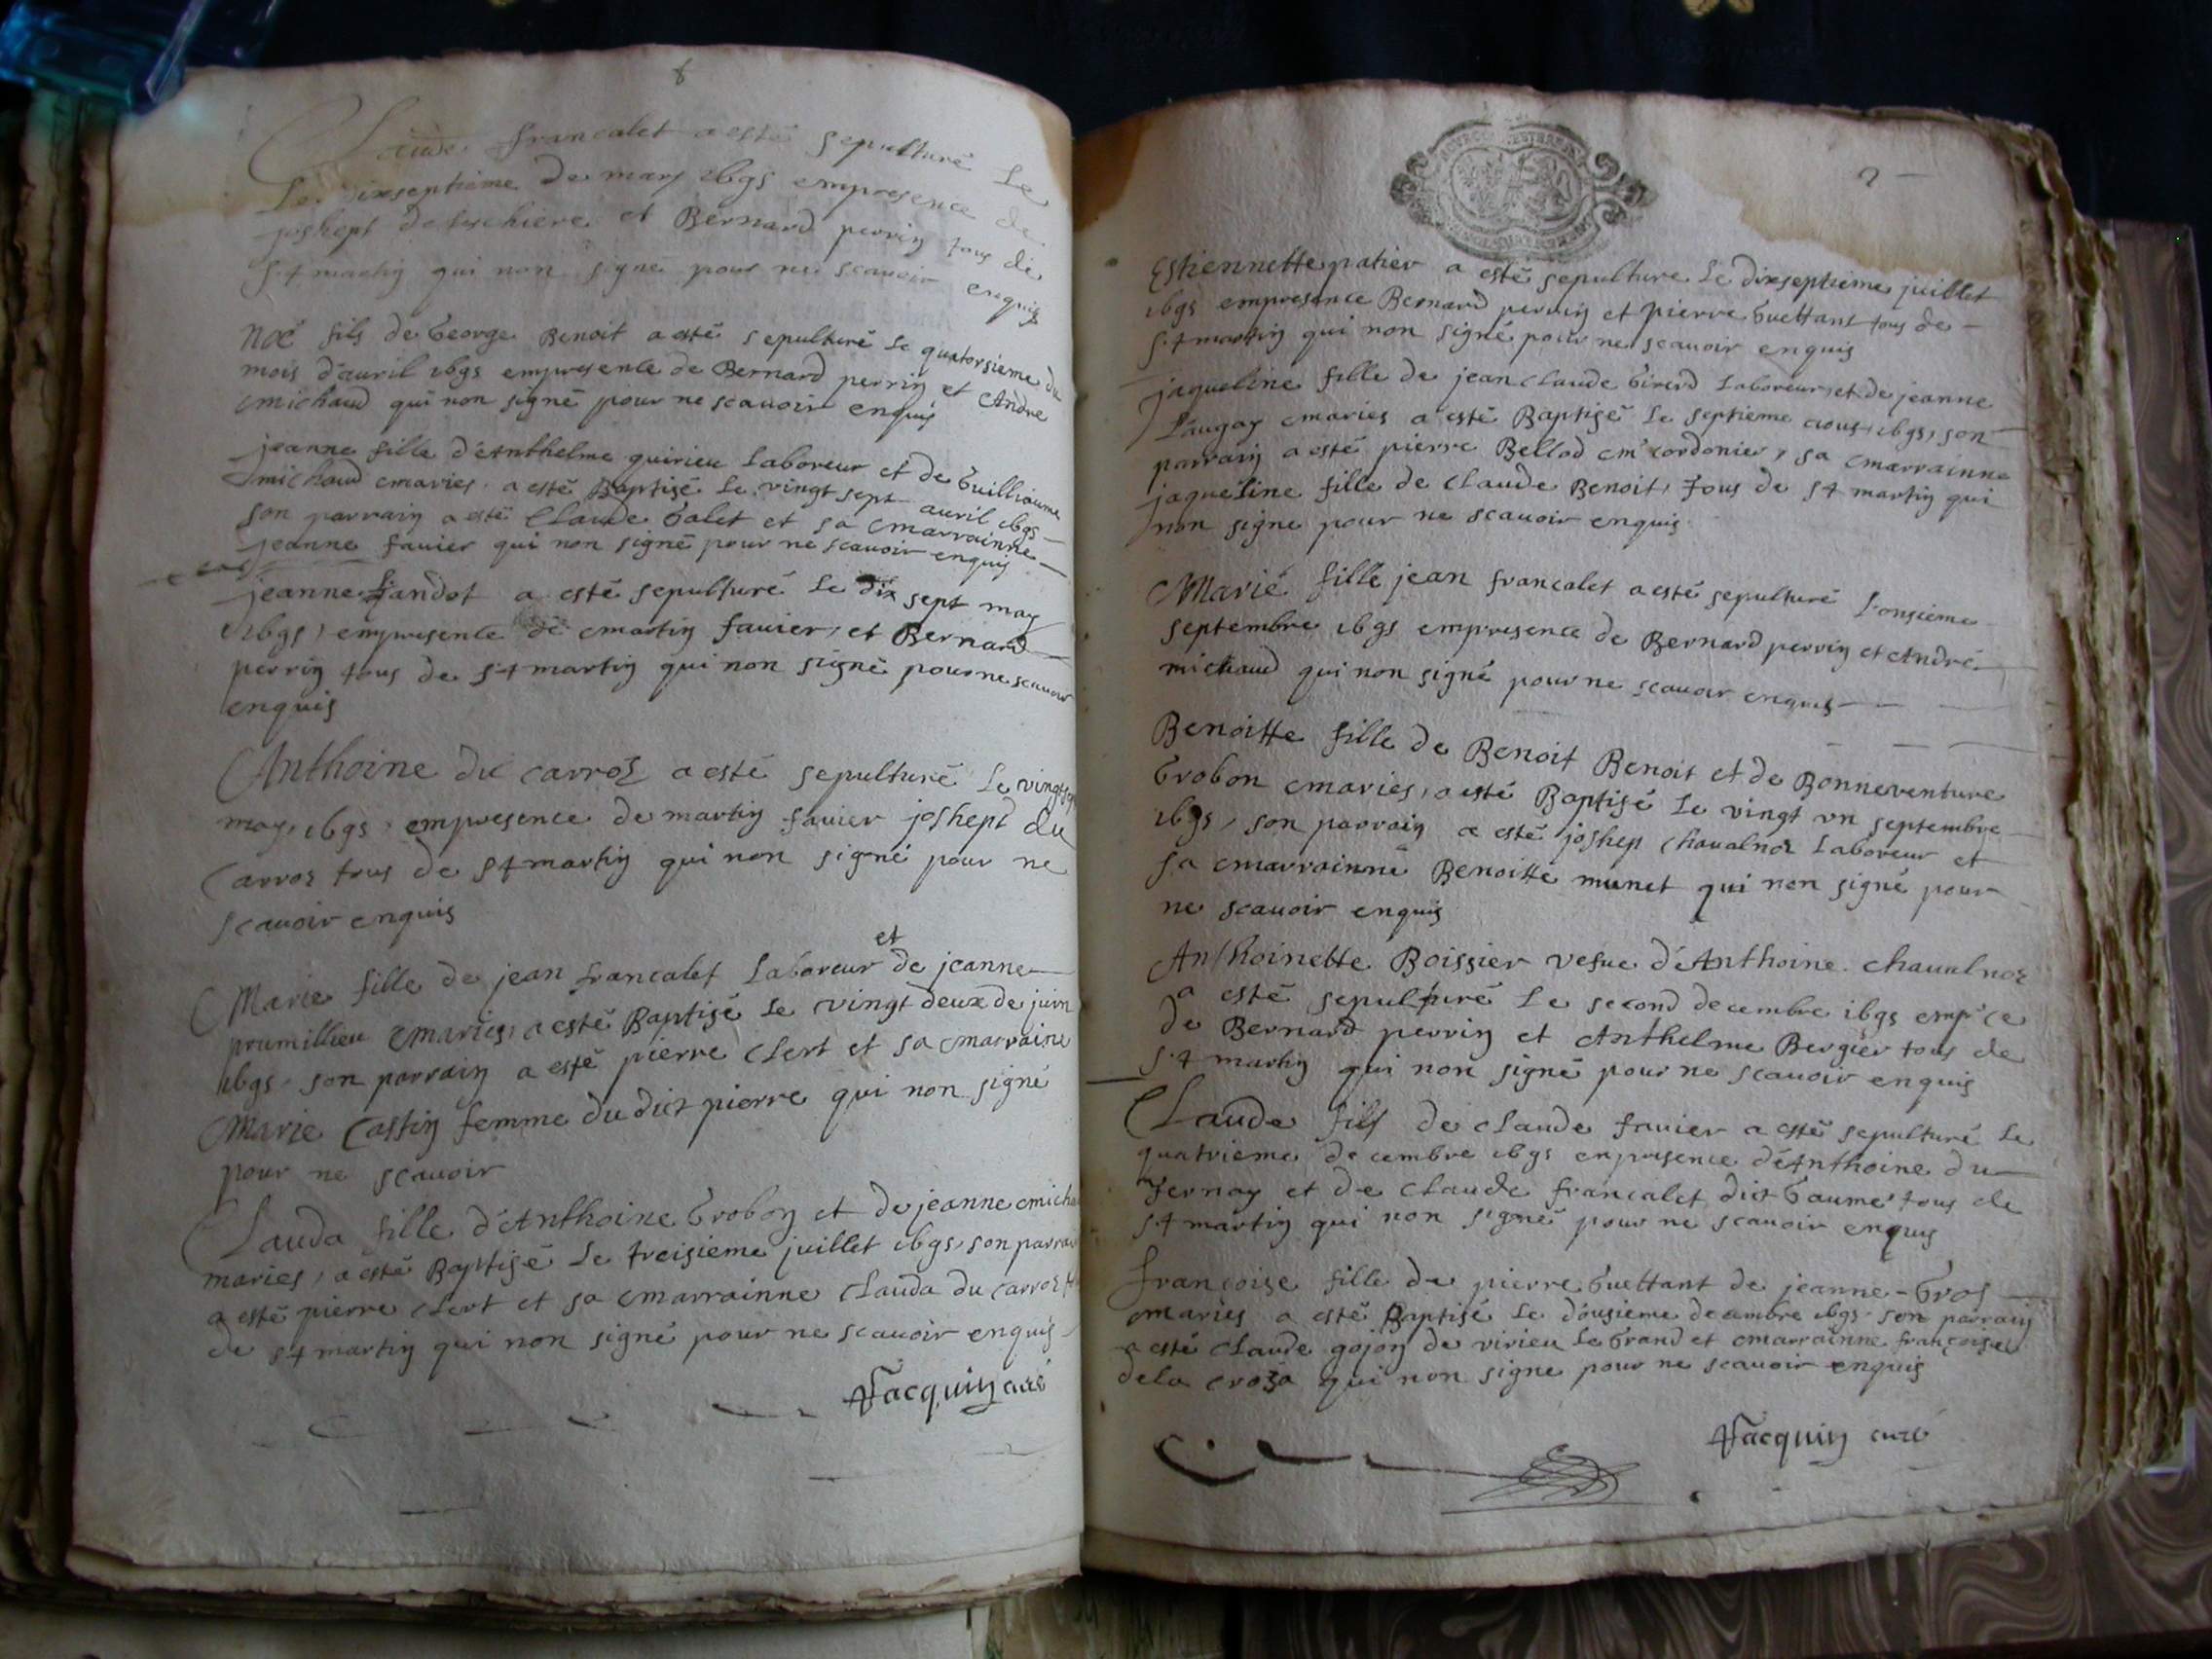 6
Claude francalet a esté sepulturé Le
Le dixseptieme de mars 1695 empresence de
joshept et Bernard perrin tous de
St martin qui non signé pour ne scauoir enquis
Noé fils de George Benoit a esté sepulturé Le quatorsieme du
mois d'auril 1695 empresente de Bernard perrin et Andre
michaud qui non signé pour ne scauoir enquis
jeanne fille d'Anthelme quirieu Laboreur et de Guilliaume
michaud maries a esté Baptisé Le vingt sept auril 1695
son parrain a esté Claude Galet et sa marrainne
jeanne fauier qui non signé pour ne scauoir enquis
jeanne a esté sepulturé Le dix sept may
1695, empresente de martin fauier, et Bernard
perrin tous de St martin qui non signé pour ne scauoir
enquis
Anthoine du Carroz a esté sepulturé Le
may, 1695, empresence de martin fauier joshept du
Carroz tous de St martin qui non signé pour ne
scauoir enquis
et
Marie fille de jean francalet Laboreur de jeanne
proumillieu maries, a esté Baptisé Le vingt deux de juin
1695 son parrain a esté pierre Clert et sa marraine
Marie Castin femme du dict pierre qui non signé
pour ne scauoir
Clauda fille d'Anthoine Grobon et de jeanne
maries, a esté Baptisé Le treisieme juillet 1695, son parrain
a esté pierre Clert et sa marrainne Clauda du Carroz
de St martin qui non signé pour ne scauoir enquis
Jacquin curé
Estiennette patier a esté sepulture Le dixseptieme juillet
1695 empresence Bernard perrin et pierre Guettant tous de
St martin qui non signé pour ne scauoir enquis
jaqueline fille de jean Claude Girerd Laboreur, et de jeanne
Laugay maries a esté Baptisé Le septieme aous, 1695, son
parrain a esté pierre Bellod mr cordonier, sa marrainne
jaqueline fille de Claude Benoit, tous de St martin qui
non signe pour ne scauoir enquis
Marie fille jean francalet a esté sepulturé L'onsieme
septembre 1695 empresence de Bernard perrin et André
michaud qui non signé pour ne scauoir enquis
Benoitte fille de Benoit Benoit et de Bonneventure
Grobon maries, a esté Baptisé Le vingt vn septembre
1695, son parrain a esté joshep Chaualnoz Laboreur et
sa marrainne Benoitte munet qui non signé pour
ne scauoir enquis
Anthoinette Boissier vesue d'Anthoine chaualnoz
a esté sepulturé Le second decembre 1695 emp ce
de Bernard perrin et Anthelme Bergier tous de
St martin qui non signé pour ne scauoir enquis
Claude fils de Claude fauier a esté sepulturé Le
quatrieme decembre 1695 enpresence d'Anthoine du
fernay et de Claude francalet dict Gaume, tous de
St martin qui non signé pour ne scauoir enquis
françoise fille de pierre Guettant de jeanne Gros
maries a esté Baptisé Le dousieme decembre 1695 son parrain
a esté Claude gojon de virieu Le Grand et marrainne françoise
dela croza qui non signe pour ne scauoir enquis
Jacquin curé